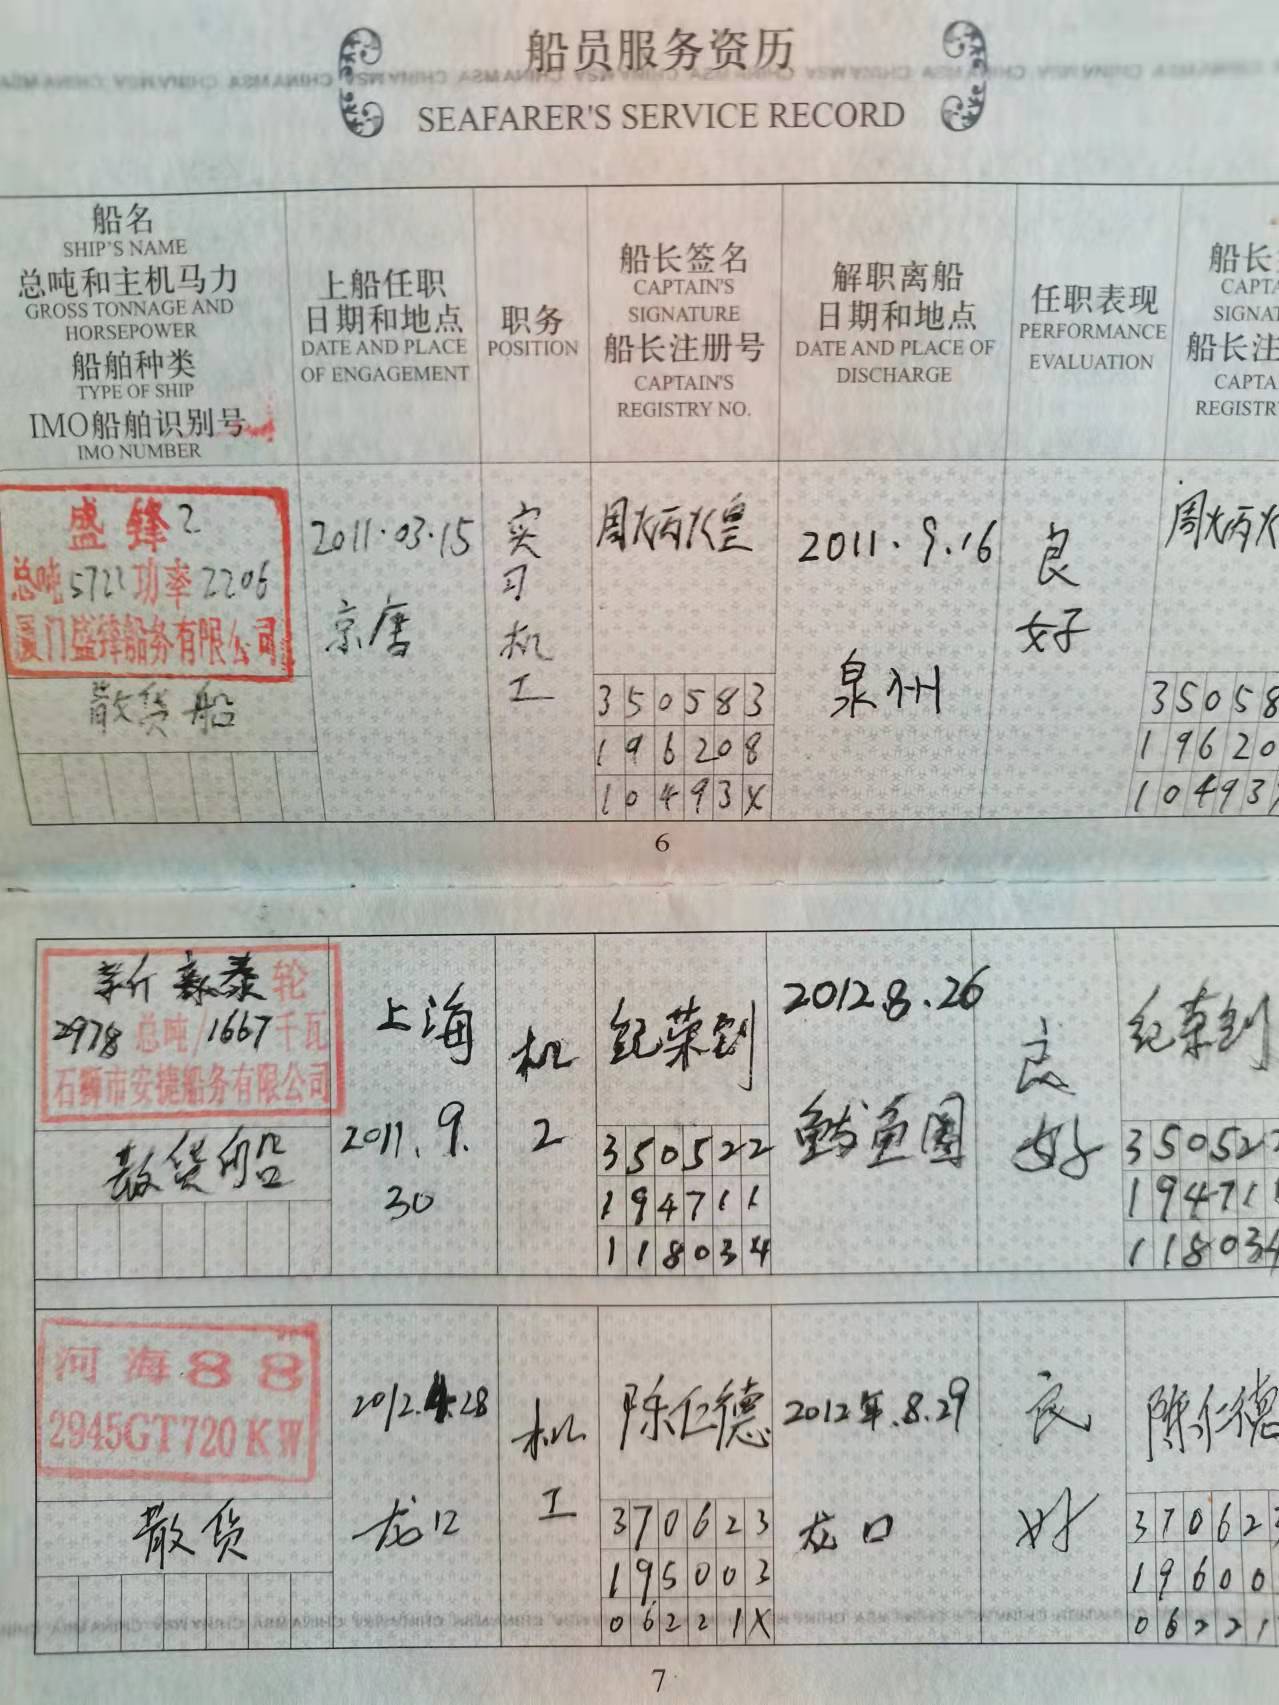 船员服务资历
SEAFARER'S SERVICE RECORD
船名
SHIP'S NAME
总吨和主机马力
GROSS TONNAGE AND
HORSEPOWER
船舶种类
TYPE OF SHIP
IMO船舶识别号
IMO NUMBER
上船任职
日期和地点
DATE AND PLACE
OF ENGAGEMENT
职务
POSITION
船长签名
CAPTAIN'S
SIGNATURE
船长注册号
CAPTAIN'S
REGISTRY NO.
解职离船
日期和地点
DATE AND PLACE OF
DISCHARGE
任职表现
PERFORMANCE
EVALUATION
船长
CAPTA
SIGNAT
船长注
CAPTA
REGISTR
盛锋2
总吨5721功率2206
厦门盛锋船务有限公司
散货船
2011.03.15
京唐
实
习
机
工
350583
196208
10493X
2011.9.16
泉州
良
好
35058
19620
10493
6
轮
2978总吨/1667千瓦
石狮市安捷船务有限公司
散货船
上海
2011.9.
30
机
2
纪荣钊
350522
194711
118034
2012.8.26
鱼圈
良
好
纪荣钊
35052
19471
118034
河海88
2945GT720KW
散货
2012.4.28
龙口
机
工
陈仁德
370623
195003
06221X
2012年.8.29
龙口
良
好
陈仁德
370623
19600
06221
7